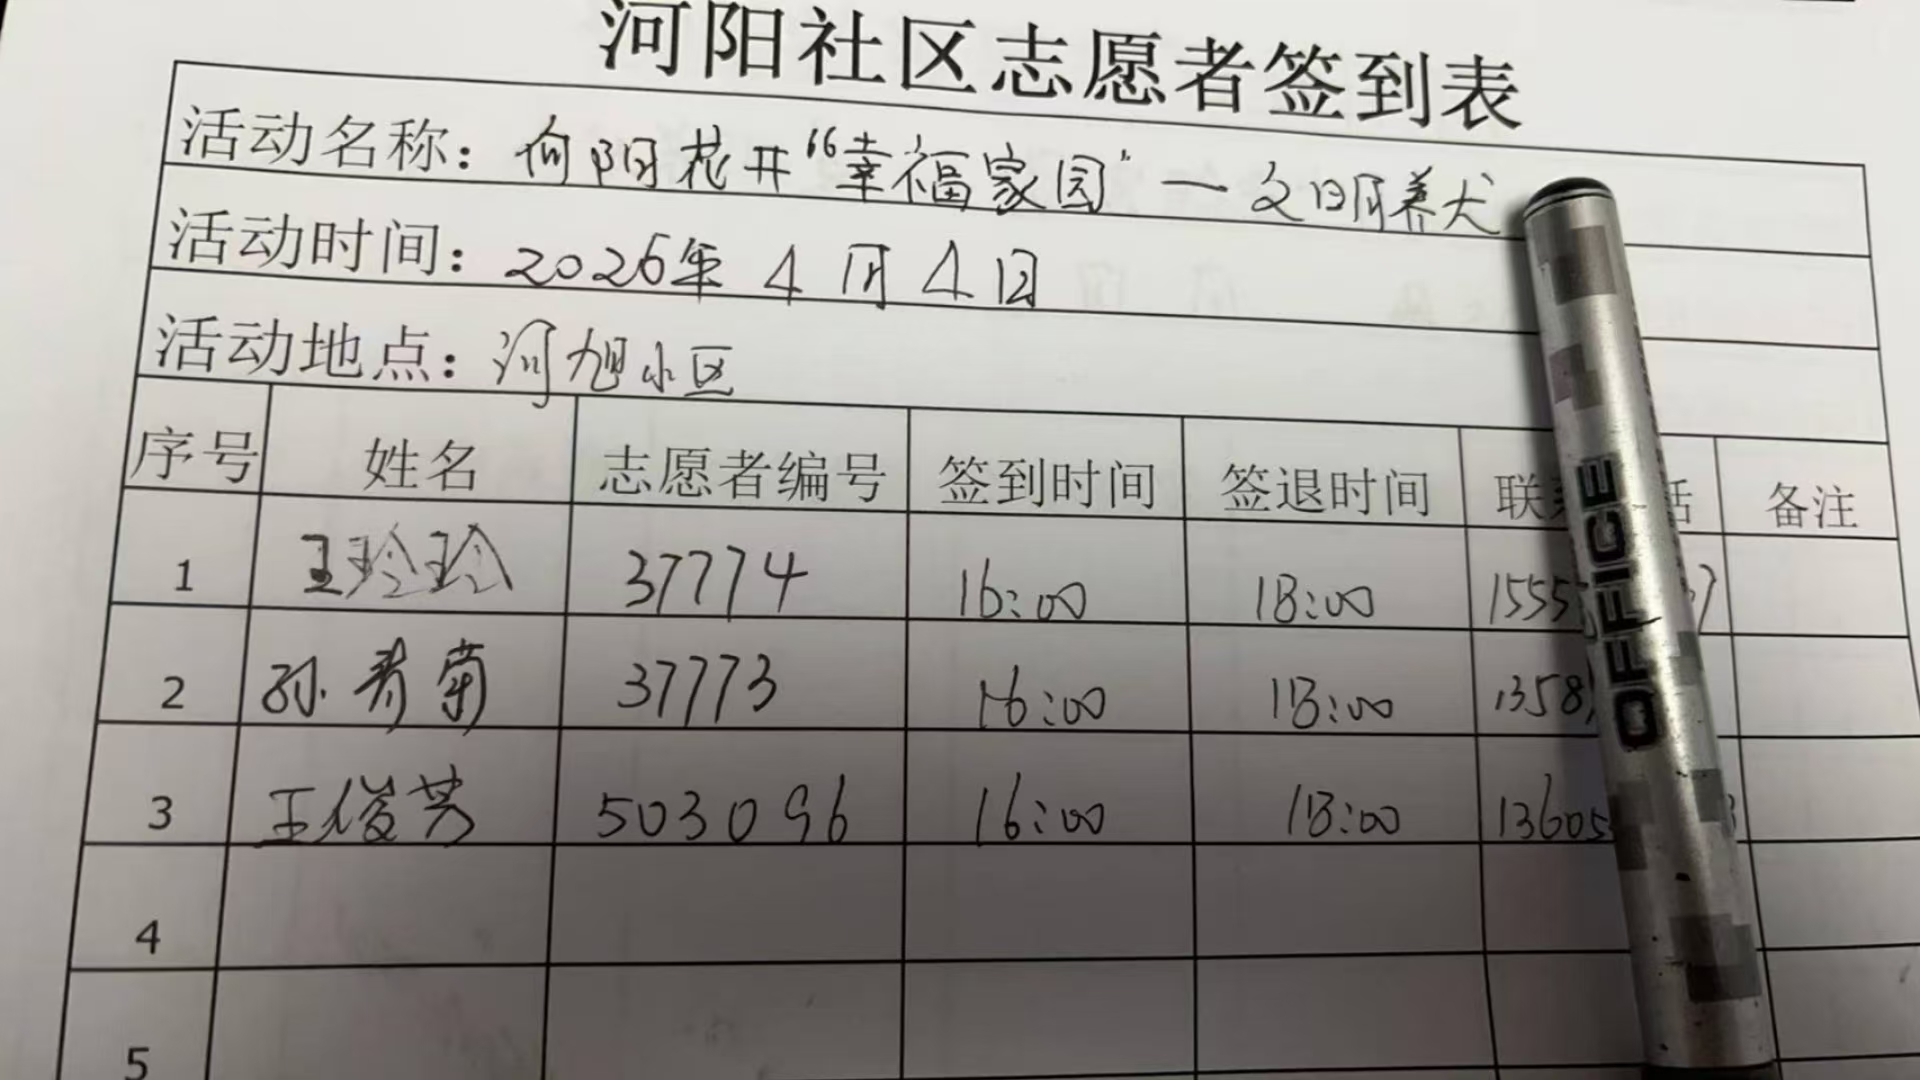 河阳社区志愿者签到表
活动名称：向阳花开“幸福家园”一文明养犬
活动时间：2026年4月4日
活动地点：河旭小区
序号 姓名 志愿者编号 签到时间 签退时间 联 话 备注
1 王玲玲 37774 16:00 18:00 1555 7
2 孙青菊 37773 16:00 18:00 1358
3 王俊芳 503096 16:00 18:00 13605 3
4
5
OFFICE